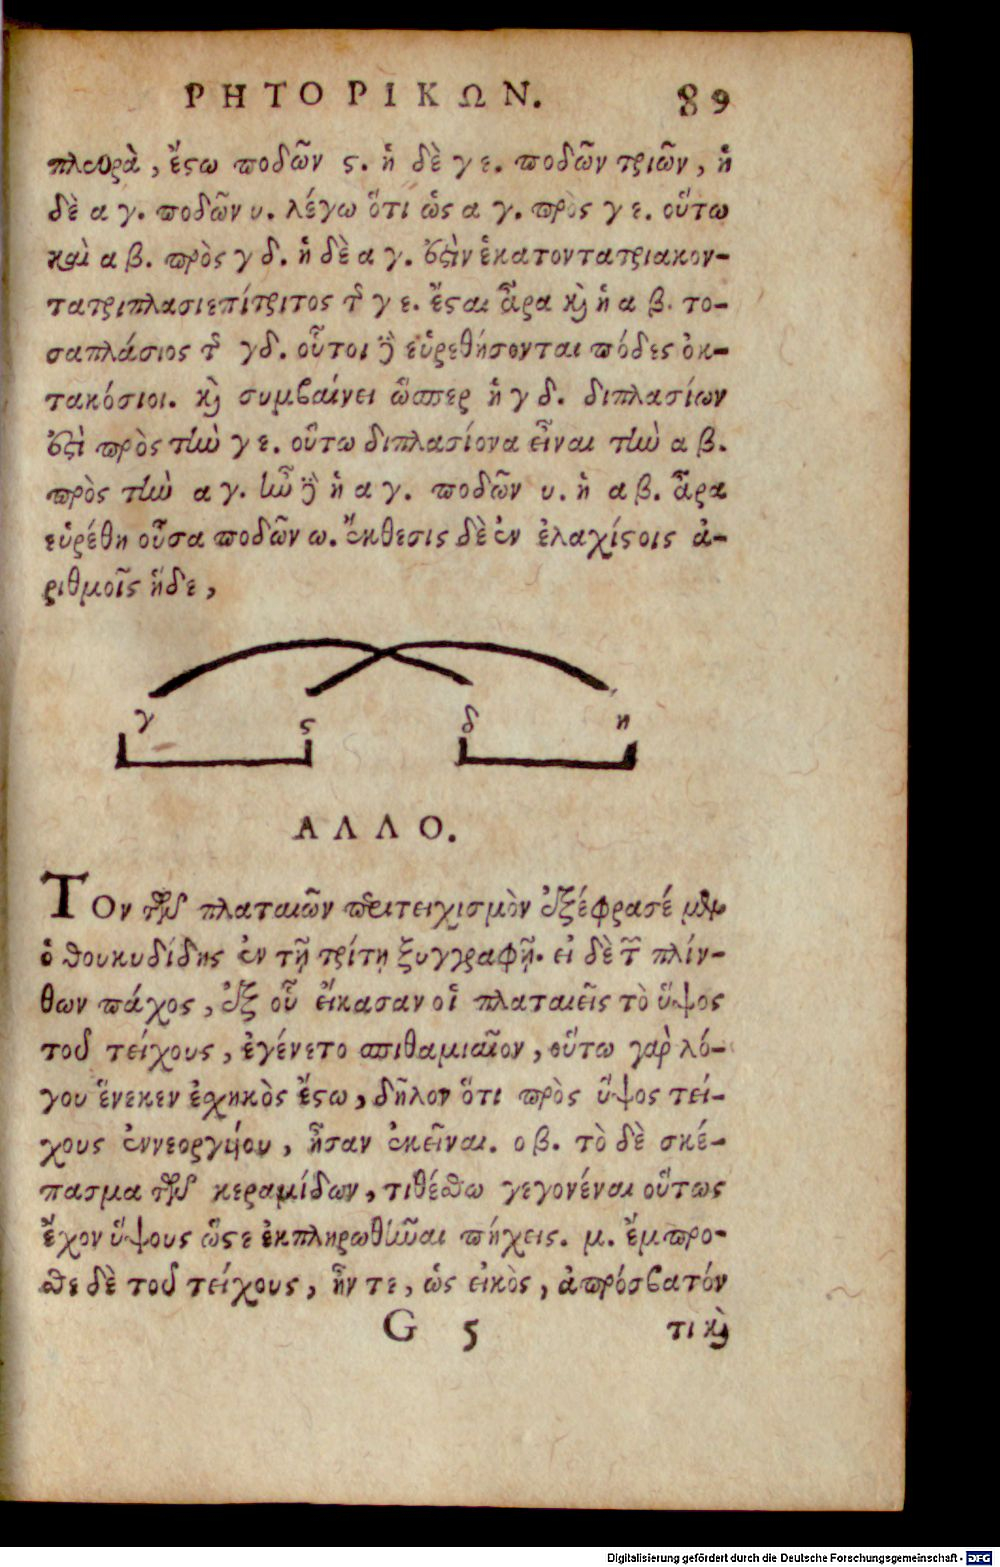 ΡΗΤΟΡΙΚΩΝ. 89
πλευρὰ, ἔςω ποδῶν ς. ἡ δὲ γ ε. ποδῶν τριῶν, ἡ
δὲ α γ. ποδῶν υ. λέγω ὅτι ὡς α γ. πρὸς γ ε. οὕτω
καὶ α β. πρὸς γ δ. ἡ δὲ α γ. ἐςὶν ἑκατοντατριακον-
τατριπλασιεπίτριτος τῆς γ ε. ἔςαι ἄρα καὶ ἡ α β. το-
σαπλάσιος τῆς γδ. οὗτοι γὰρ εὑρεθήσονται πόδες ὀκ-
τακόσιοι. καὶ συμβαίνει ὥσπερ ἡ γ δ. διπλασίων
ἐςὶ πρὸς τὴν γ ε. οὕτω διπλασίονα εἶναι τὴν α β.
πρὸς τὴν α γ. ἦν γὰρ ἡ α γ. ποδῶν υ. ἡ α β. ἄρα
εὑρέθη οὖσα ποδῶν ω. ἔκθεσις δὲ ἐν ἐλαχίςοις ἀ-
ριθμοῖς ἥδε,
γ ς δ η
ΑΛΛΟ.
ΤΟν τῶν πλαταιῶν περιτειχισμὸν ἐξέφρασέ μὲν
ὁ θουκυδίδης ἐν τῇ τρίτῃ ξυγγραφῇ. εἰ δὲ τῶν πλίν-
θων πάχος, ἐξ οὗ εἴκασαν οἱ πλαταιεῖς τὸ ὕψος
τοῦ τείχους, ἐγένετο σπιθαμιαῖον, οὕτω γὰρ λό-
γου ἕνεκεν ἐχηκὸς ἔςω, δῆλον ὅτι πρὸς ὕψος τεί-
χους ἐννεοργύου, ἦσαν ἐκεῖναι. οβ. τὸ δὲ σκέ-
πασμα τῶν κεραμίδων, τιθέσθω γεγονέναι οὕτως
ἔχον ὕψους ὥςε ἐκπληρωθῆναι πήχεις. μ. ἔμπρο-
σθε δὲ τοῦ τείχους, ἦν τε, ὡς εἰκὸς, ἀπρόσβατόν
G 5 τι καὶ
Digitalisierung gefördert durch die Deutsche Forschungsgemeinschaft - DFG